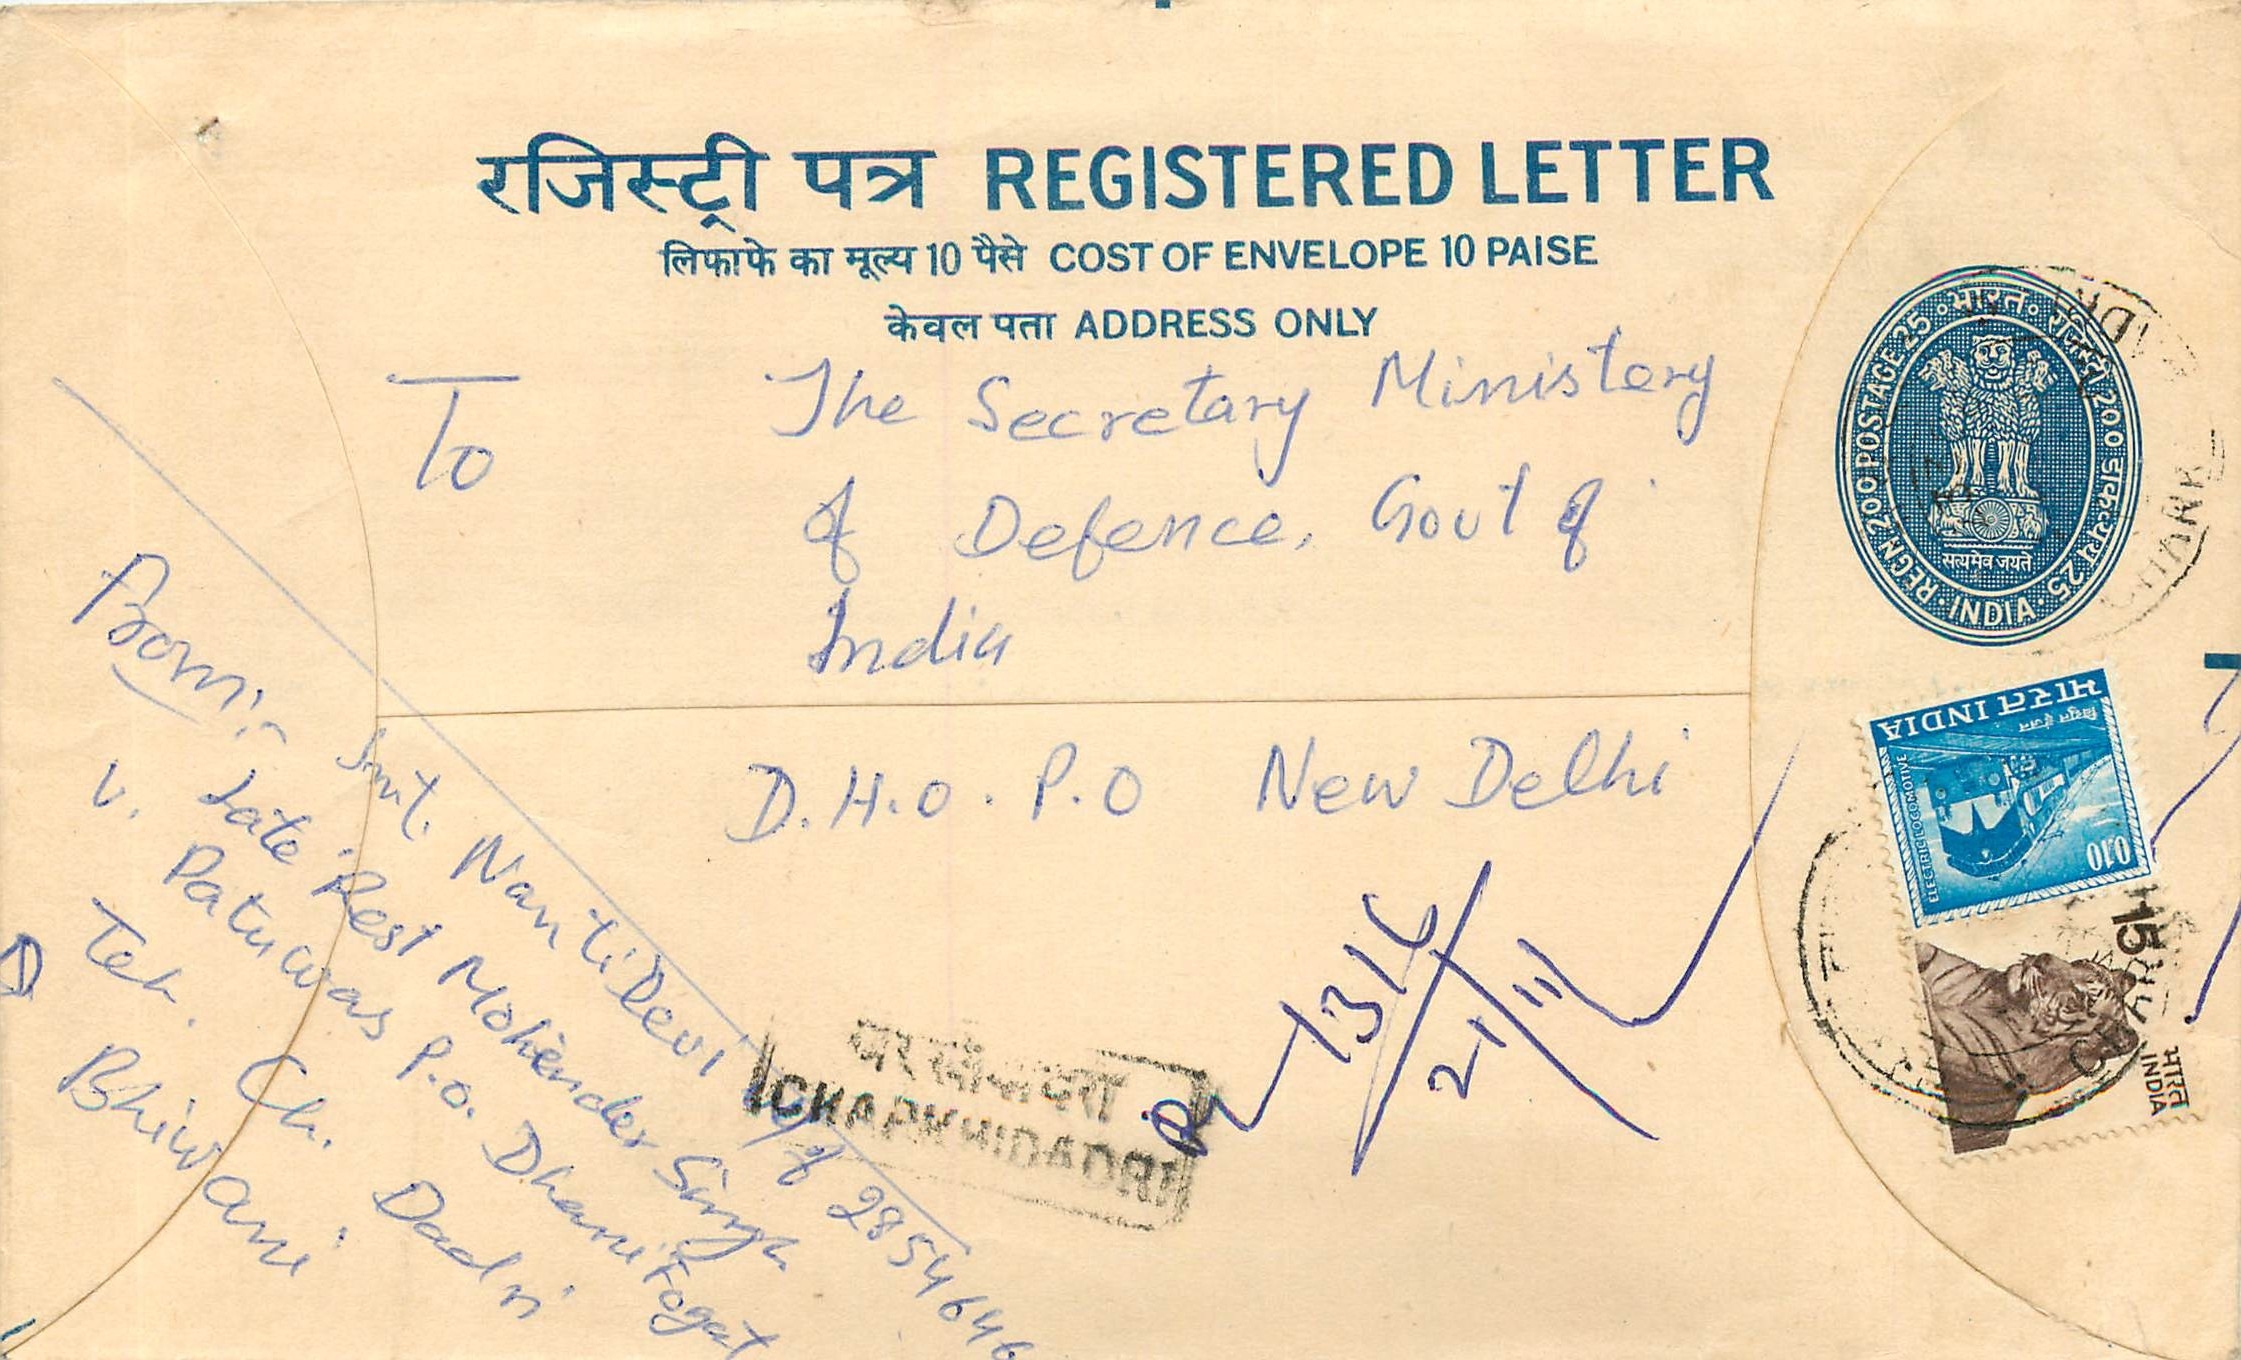 रजिस्ट्री पत्र REGISTERED LETTER
लिफाफे का मूल्य 10 पैसे COST OF ENVELOPE 10 PAISE
केवल पता ADDRESS ONLY
To
The Secretary Ministery
of Defence, Govt of
India
D.H.O. P.O New Delhi
From:-
Smt. Nanti Devi W/of 2854646
Late Rest Mohender Singh
V. Patuwas P.O. Dhani Fogat
Teh. Ch. Dadri
Bhiwani
CHARKHIDADRI
R 1316
21/11
भारत
REGN 200 POSTAGE 25
रजिस्ट्री 200 डाक-व्यय 25
सत्यमेव जयते
INDIA
भारत INDIA
विद्युत इंजन
ELECTRIC LOCOMOTIVE
0.10
15
भारत
INDIA